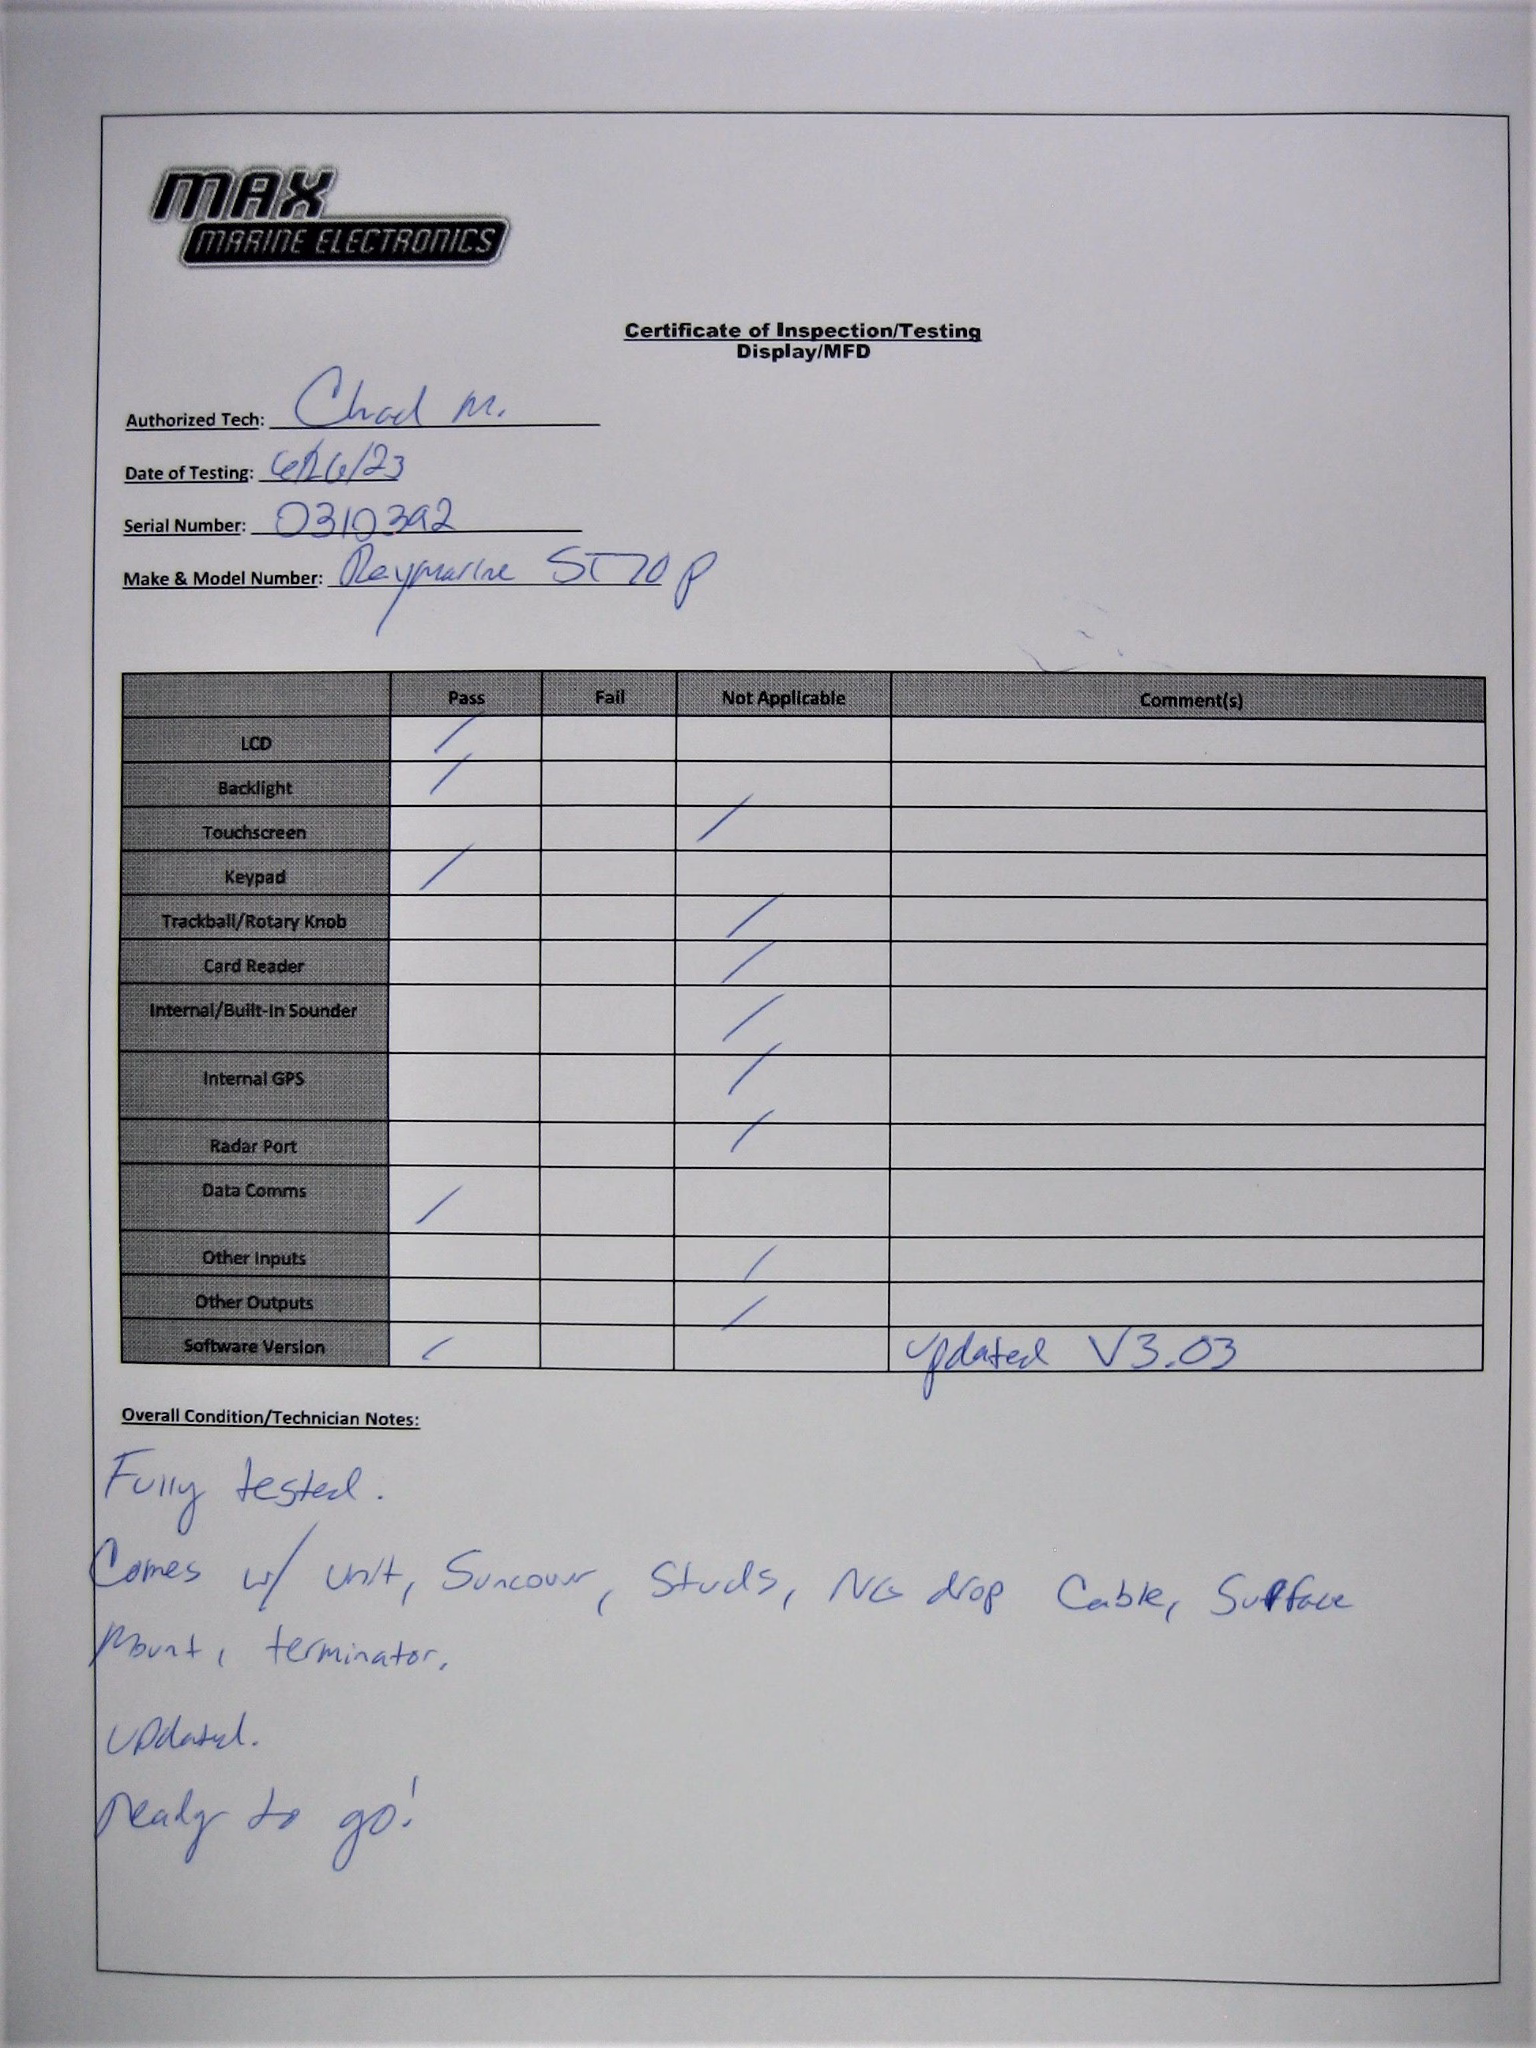 MAX
MARINE ELECTRONICS
Certificate of Inspection/Testing
Display/MFD
Authorized Tech: Chad M.
Date of Testing: 6/26/23
Serial Number: 0310392
Make & Model Number: Raymarine ST70 P
Pass Fail Not Applicable Comment(s)
LCD /
Backlight /
Touchscreen /
Keypad /
Trackball/Rotary Knob /
Card Reader /
Internal/Built-In Sounder /
Internal GPS /
Radar Port /
Data Comms /
Other Inputs /
Other Outputs /
Software Version / updated V3.03
Overall Condition/Technician Notes:
Fully tested.
Comes w/ unit, Suncover, Studs, NG drop Cable, Surface
Mount, terminator.
updated.
ready to go!